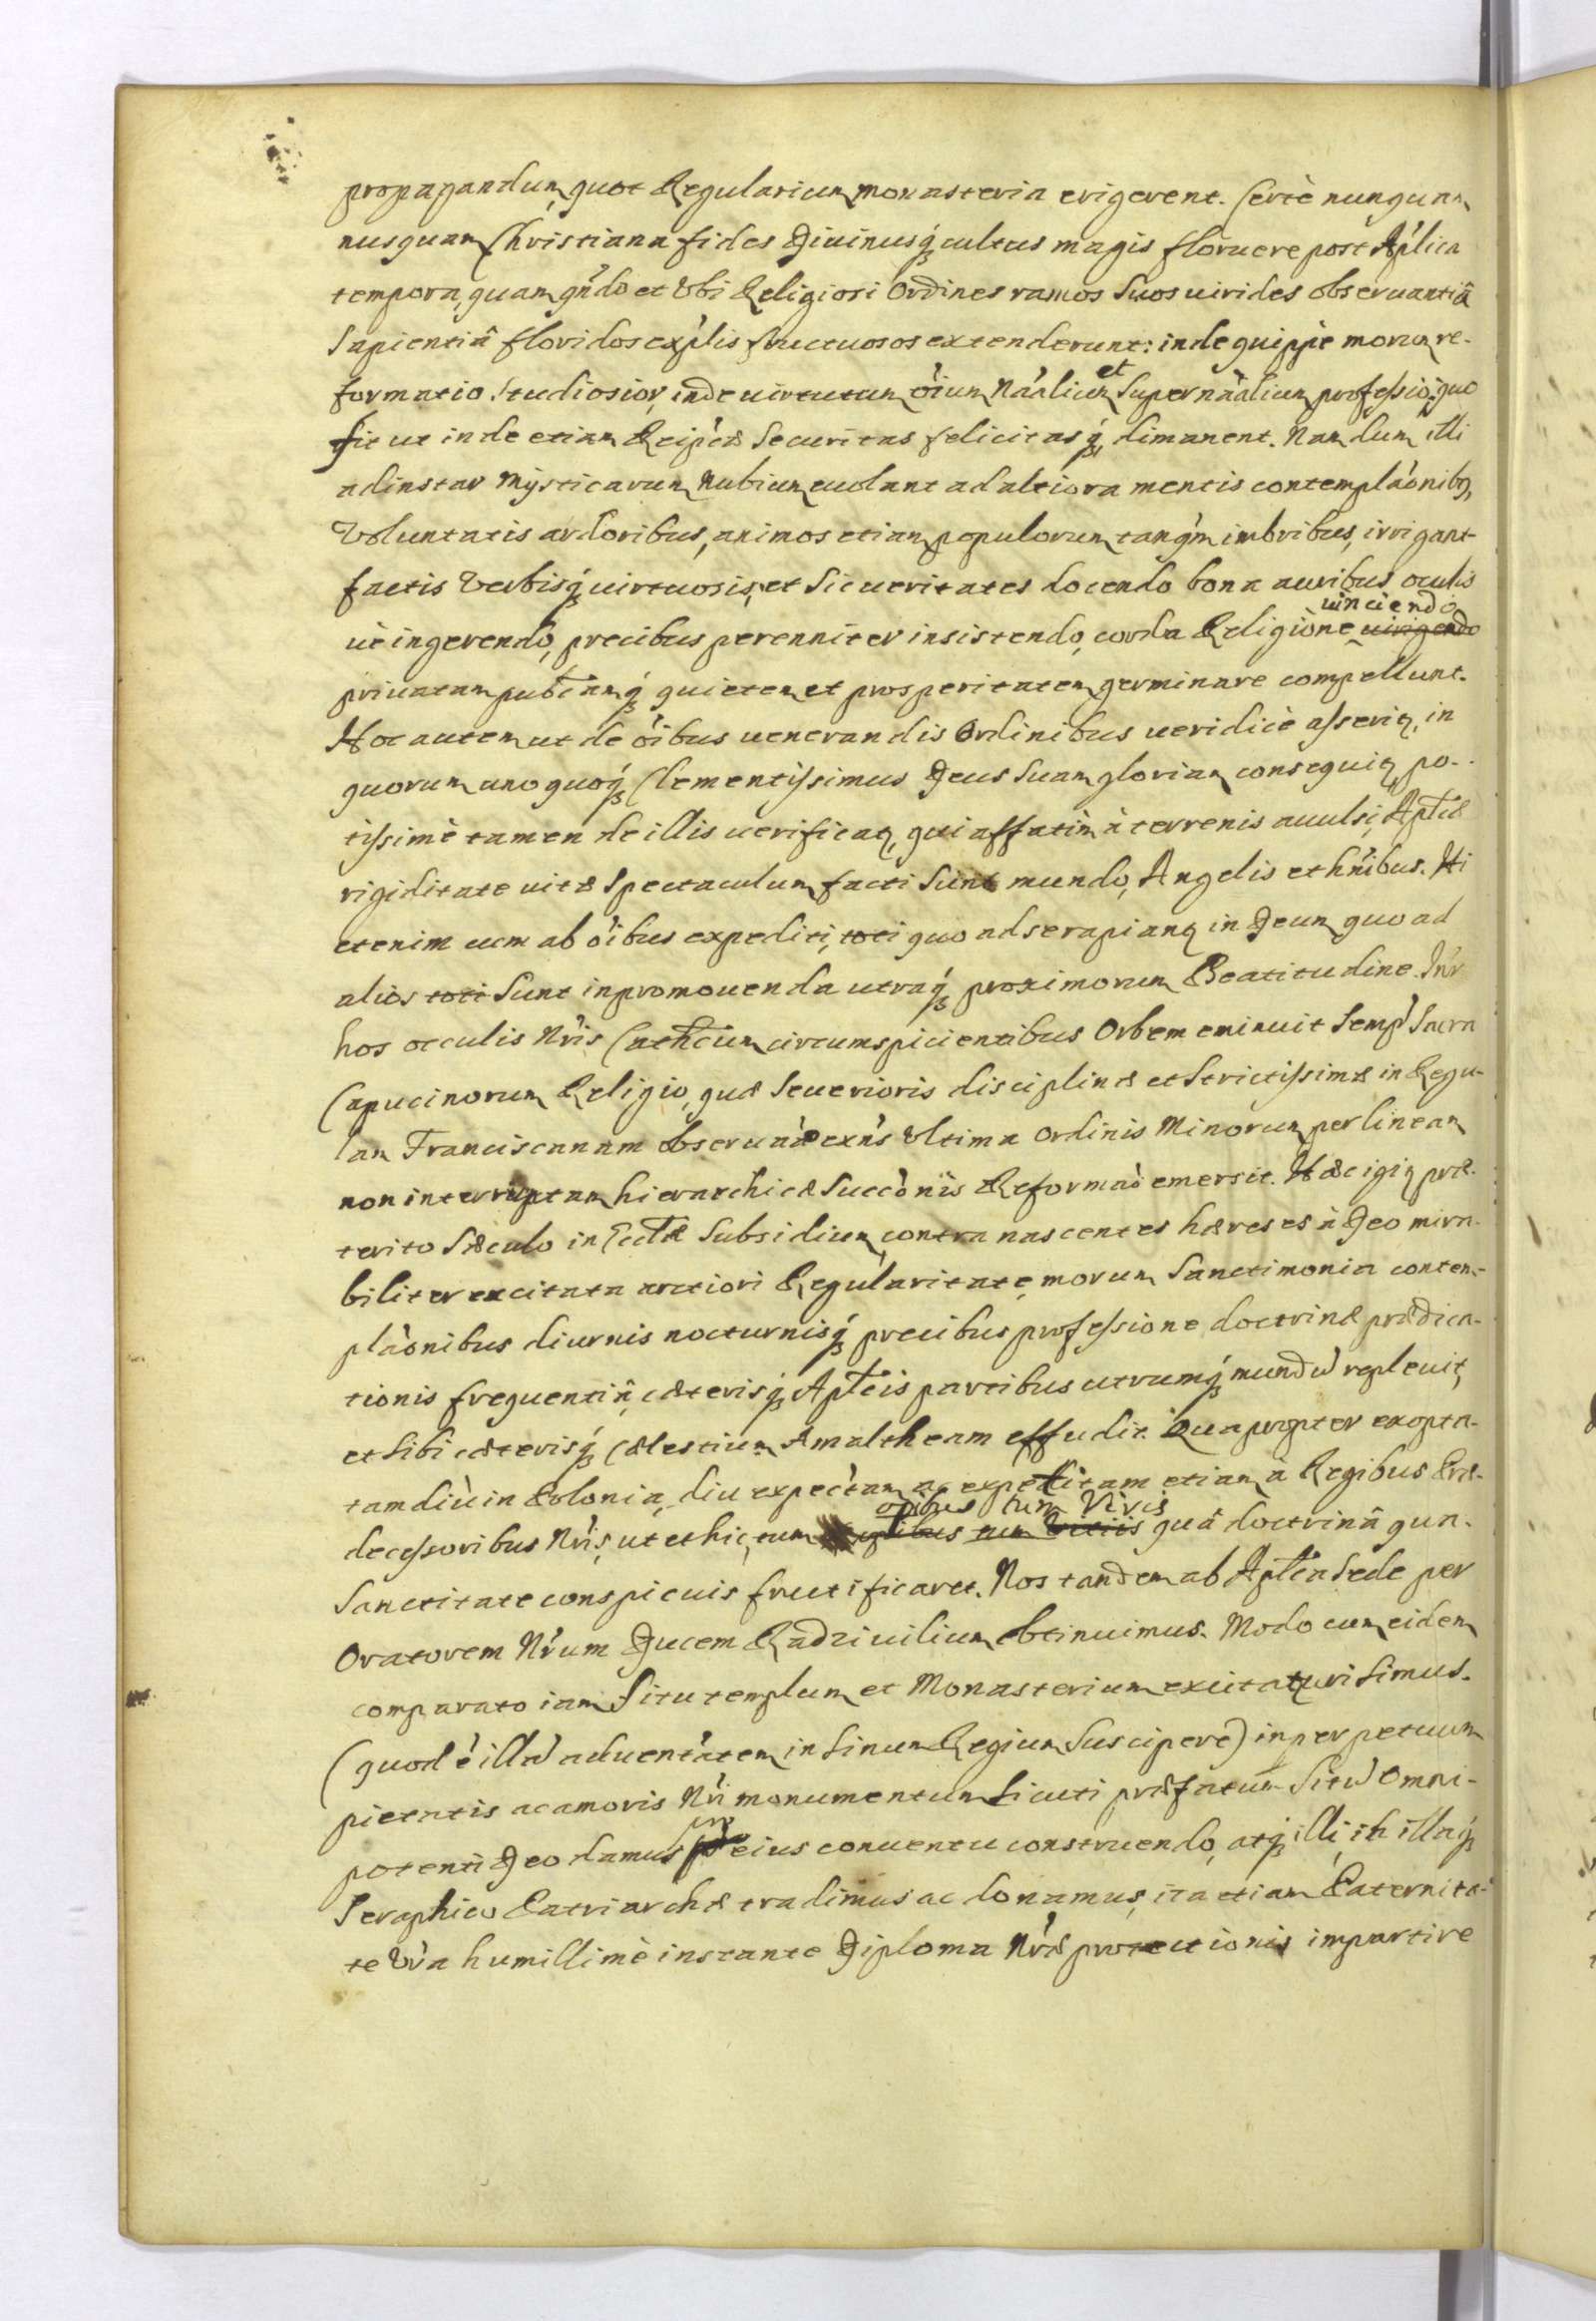 propagandum, quot Regularium monasteria erigerent. Certè nunquam
nusquam Christiana fides Diuinusq́ cultus magis floruere post Aplica
tempora, quam qñdo et Vbi Religiosi Ordines ramos suos uirides obseruantiâ
Sapientiâ floridos exṕlis fructuosos extenderunt: inde quippè morum re-
formatio studiosior, inde uirtutum óium Náalium et Supernáalium professio: quo
fit ut inde etiam Reipćæ Securitas felicitasq́ dimanent. Nam dum illi
adinstar Mysticarum Nubium euolant ad altiora mentis contempláonibq,
Voluntatis ardoribus, animos etiam populorum tanq́m imbribus, irrigant
factis Verbisq́ uirtuosis, et Sic ueritates docendo bona auribus oculis
uè ingerendo, precibus perenniter insistendo, corda Religione uinciendo
priuatam pubćamq́ quietem et prosperitatem germinare compellunt.
Hoc autem ut de óibus uenerandis Ordinibus ueridicè asseriq, in
quorum uno quoq́ Clementissimus Deus Suam gloriam consequiq, po-
tissimè tamen de illis uerificaq, qui affatim à terrenis auulsi, Aptćæ
rigiditate uitæ Spectaculum facti Sunt mundo, Angelis et hńibus. Hi
etenim cum ab óibus expediti, toti quo ad se rapianq in Deum, quo ad
alios toti Sunt in promouenda utraq́ proximorum Beatitudine. Intr
hos occulis Nris Cathcum circumspicientibus Orbem eminuit Semp Sacra
Capucinorum Religio, quæ Seuerioris disciplinæ et Strictissimæ in Regu-
lam Franciscanam obseruáæ exńs Vltima Ordinis Minorum per lineam
non interruptam hierarchicæ Succònis Reformaò emersit. Hæc igiq præ-
terito Sæculo in Ecctæ Subsidium, contra nascentes hæreses à Deo mira-
biliter excitata arctiori Regularitate, morum Sanctimonia contem-
pláonibus diurnis nocturnisq́ precibus professione doctrinæ prædica-
tionis frequentiâ, cæterisq́ Aptcis partibus utrumq́ mundũ repleuit,
et Sibi cæterisq́ Cælestium Amaltheam effudit. Quapropter exopta-
tam diù in Polonia, diu expectam, ac expetitam etiam à Regibus Præ-
decessoribus Nris, ut et hic, tum opibus tum Viris quâ doctrinâ qua
Sanctitate conspicuis fructificaret. Nos tandem ab Aptca Sede per
Oratorem Nrum Ducem Radziuilium obtinuimus. Modo cum eidem
comparato iam Situ templum et Monasterium excitaturi Simus.
(quod è illã aduentátem in Sinum Regium Suscipere) in perpetuum
pietatis ac amoris Nri monumentum Sicuti præfatum Sitũ Omni-
potenti Deo damus pro eius conuentu construendo, atq́ illi, in illaq́
Seraphico Patriarchæ tradimus ac donamus, ita etiam Paternita-
te Vra humillimè instante Diploma Nræ protectionis impartire